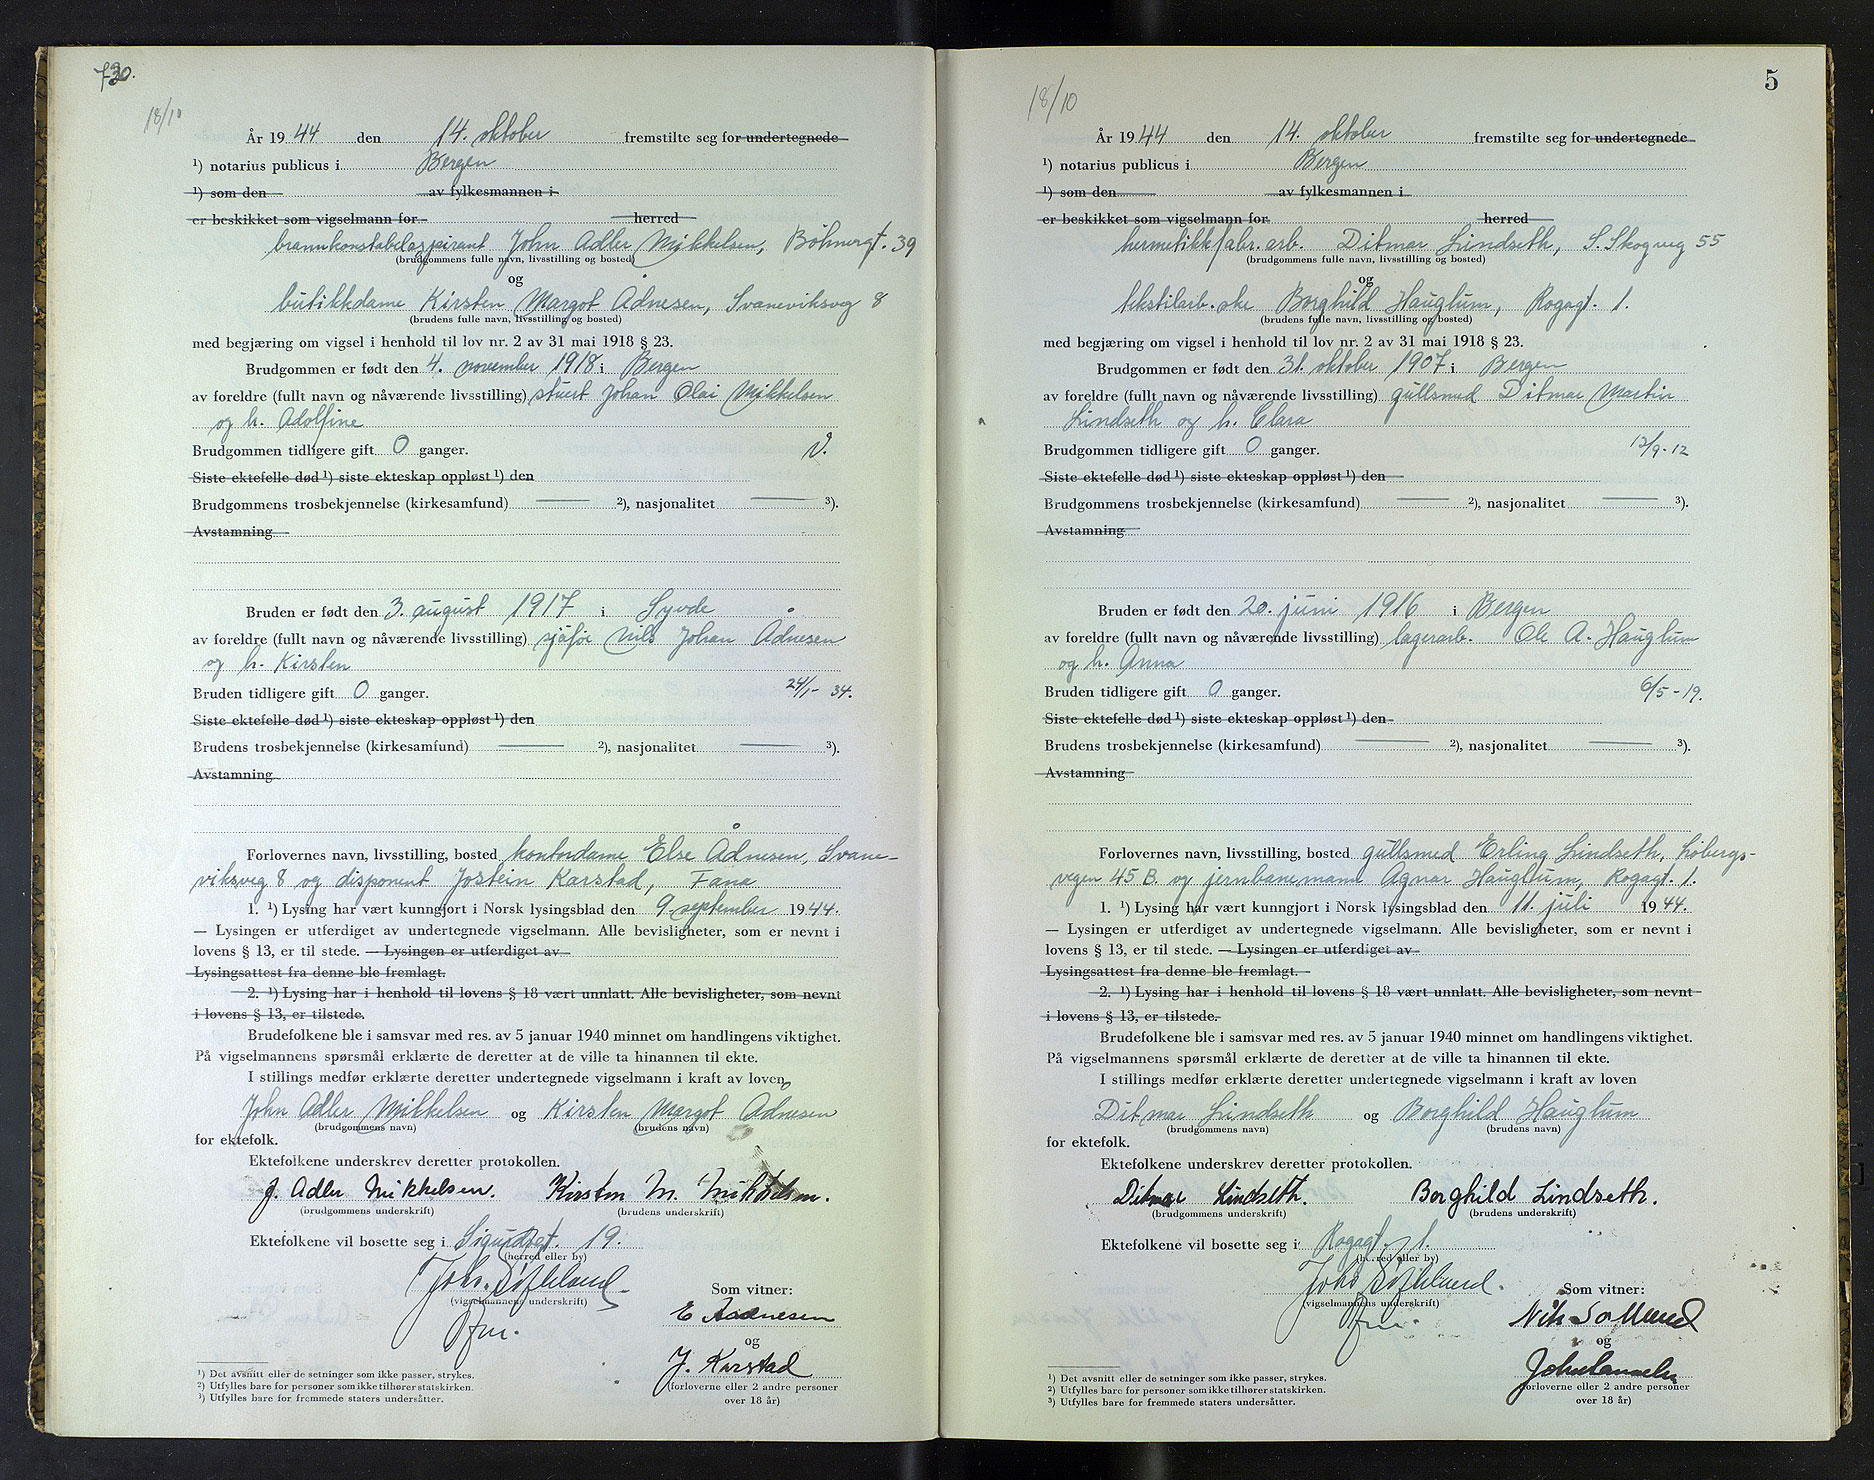 730.
18/10
År 1944 den 14. oktober fremstilte seg for undertegnede
¹) notarius publicus i Bergen
¹) som den av fylkesmannen i
er beskikket som vigselmann for herred
brannkonstabelaspirant John Adler Mikkelsen, Böhmergt. 39
(brudgommens fulle navn, livsstilling og bosted)
og
butikkdame Kirsten Margot Ådnesen, Svaneviksveg 8
(brudens fulle navn, livsstilling og bosted)
med begjæring om vigsel i henhold til lov nr. 2 av 31 mai 1918 § 23.
Brudgommen er født den 4. november 1918 i Bergen
av foreldre (fullt navn og nåværende livsstilling) stuert Johan Olai Mikkelsen
og h. Adolfine
Brudgommen tidligere gift 0 ganger. V.
Siste ektefelle død ¹) siste ekteskap oppløst ¹) den
Brudgommens trosbekjennelse (kirkesamfund) — ²), nasjonalitet — ³).
Avstamning
Bruden er født den 3. august 1917 i Syvde
av foreldre (fullt navn og nåværende livsstilling) sjåfør Nils Johan Ådnesen
og h. Kirsten
Bruden tidligere gift 0 ganger. 24/1- 34.
Siste ektefelle død ¹) siste ekteskap oppløst ¹) den
Brudens trosbekjennelse (kirkesamfund) — ²), nasjonalitet — ³).
Avstamning
Forlovernes navn, livsstilling, bosted kontordame Else Ådnesen, Svane-
viksveg 8 og disponent Jostein Karstad, Fana
1. ¹) Lysing har vært kunngjort i Norsk lysingsblad den 9. september 1944.
— Lysingen er utferdiget av undertegnede vigselmann. Alle bevisligheter, som er nevnt i
lovens § 13, er til stede. — Lysingen er utferdiget av
Lysingsattest fra denne ble fremlagt.
2. ¹) Lysing har i henhold til lovens § 18 vært unnlatt. Alle bevisligheter, som nevnt
i lovens § 13, er tilstede.
Brudefolkene ble i samsvar med res. av 5 januar 1940 minnet om handlingens viktighet.
På vigselmannens spørsmål erklærte de deretter at de ville ta hinannen til ekte.
I stillings medfør erklærte deretter undertegnede vigselmann i kraft av loven
John Adler Mikkelsen og Kirsten Margot Ådnesen
(brudgommens navn) (brudens navn)
for ektefolk.
Ektefolkene underskrev deretter protokollen.
J. Adler Mikkelsen. Kirsten M. Mikkelsen.
(brudgommens underskrift) (brudens underskrift)
Ektefolkene vil bosette seg i Sigurdsgt. 19.
(herred eller by)
(vigselmannens underskrift)
Som vitner:
E Aadnesen
og
J. Karstad
(forloverne eller 2 andre personer
over 18 år)
¹) Det avsnitt eller de setninger som ikke passer, strykes.
²) Utfylles bare for personer som ikke tilhører statskirken.
³) Utfylles bare for fremmede staters undersåtter.
5
18/10
År 1944 den 14. oktober fremstilte seg for undertegnede
¹) notarius publicus i Bergen
¹) som den av fylkesmannen i
er beskikket som vigselmann for herred
hermetikkfabr.arb. Ditmar Lindseth, S. Skogveg 55
(brudgommens fulle navn, livsstilling og bosted)
og
tekstilarb.ske Borghild Hauglum, Rogagt. 1.
(brudens fulle navn, livsstilling og bosted)
med begjæring om vigsel i henhold til lov nr. 2 av 31 mai 1918 § 23.
Brudgommen er født den 31. oktober 1907 i Bergen
av foreldre (fullt navn og nåværende livsstilling) gullsmed Ditmar Martin
Lindseth og h. Clara
Brudgommen tidligere gift 0 ganger. 12/9-12
Siste ektefelle død ¹) siste ekteskap oppløst ¹) den
Brudgommens trosbekjennelse (kirkesamfund) — ²), nasjonalitet — ³).
Avstamning
Bruden er født den 20. juni 1916 i Bergen
av foreldre (fullt navn og nåværende livsstilling) lagerarb. Ole A. Hauglum
og h. Anna
Bruden tidligere gift 0 ganger. 6/5-19.
Siste ektefelle død ¹) siste ekteskap oppløst ¹) den
Brudens trosbekjennelse (kirkesamfund) — ²), nasjonalitet — ³).
Avstamning
Forlovernes navn, livsstilling, bosted gullsmed Erling Lindseth, Løbergs-
vegen 45 B. og jernbanemann Agnar Hauglum, Rogagt. 1.
1. ¹) Lysing har vært kunngjort i Norsk lysingsblad den 11. juli 1944.
— Lysingen er utferdiget av undertegnede vigselmann. Alle bevisligheter, som er nevnt i
lovens § 13, er til stede. — Lysingen er utferdiget av
Lysingsattest fra denne ble fremlagt.
2. ¹) Lysing har i henhold til lovens § 18 vært unnlatt. Alle bevisligheter, som nevnt
i lovens § 13, er tilstede.
Brudefolkene ble i samsvar med res. av 5 januar 1940 minnet om handlingens viktighet.
På vigselmannens spørsmål erklærte de deretter at de ville ta hinannen til ekte.
I stillings medfør erklærte deretter undertegnede vigselmann i kraft av loven
Ditmar Lindseth og Borghild Hauglum
(brudgommens navn) (brudens navn)
for ektefolk.
Ektefolkene underskrev deretter protokollen.
Ditmar Lindseth. Borghild Lindseth.
(brudgommens underskrift) (brudens underskrift)
Ektefolkene vil bosette seg i Rogagt. 1.
(herred eller by)
(vigselmannens underskrift)
Som vitner:
og
(forloverne eller 2 andre personer
over 18 år)
¹) Det avsnitt eller de setninger som ikke passer, strykes.
²) Utfylles bare for personer som ikke tilhører statskirken.
³) Utfylles bare for fremmede staters undersåtter.